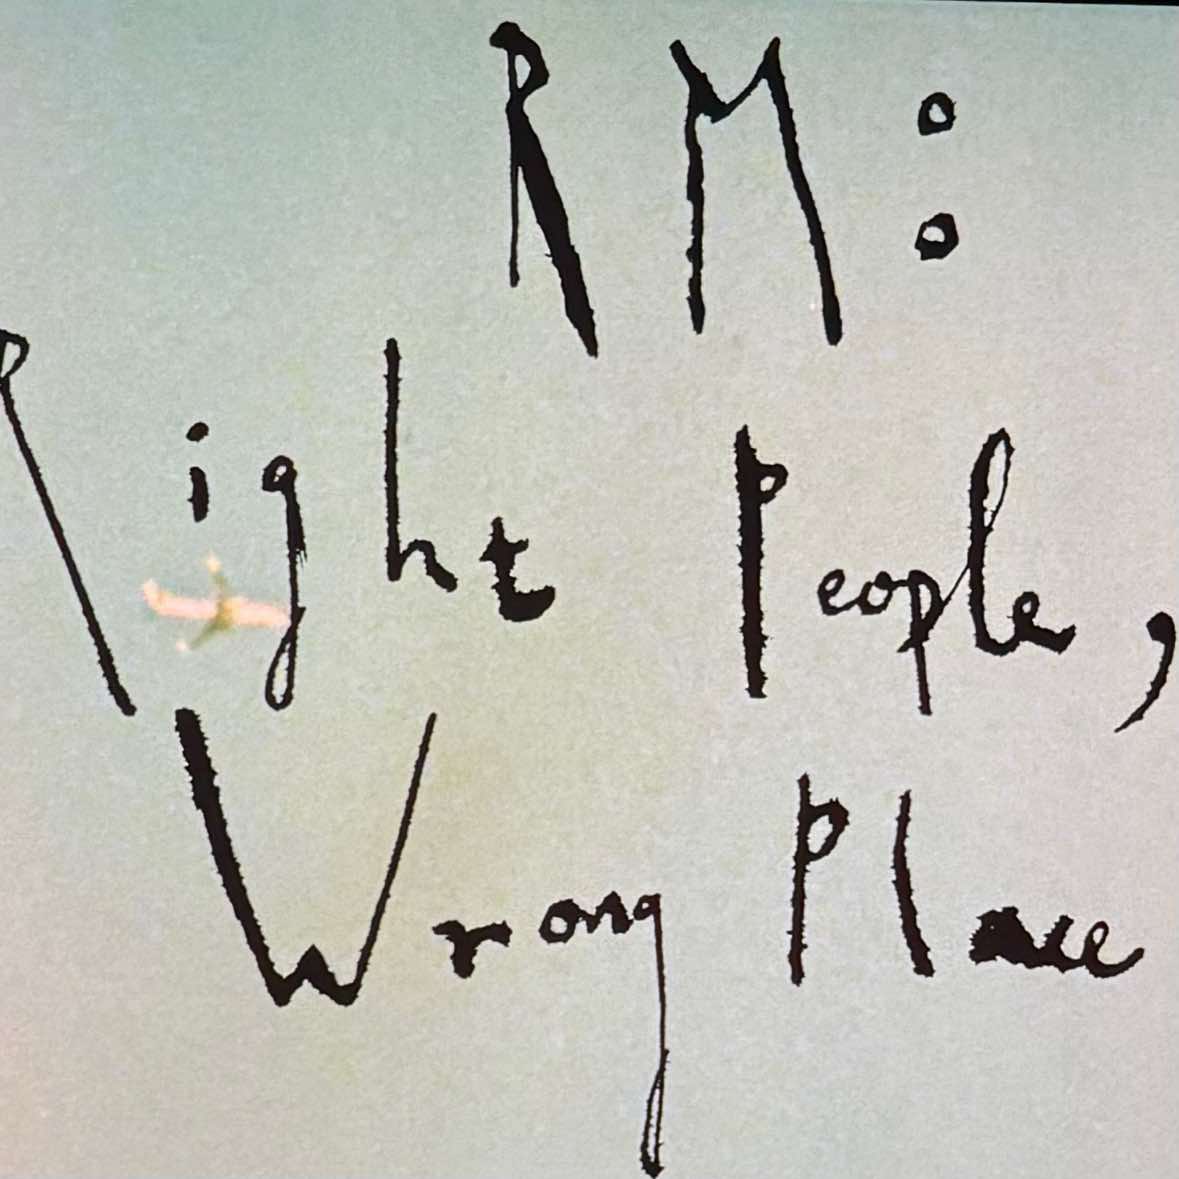 RM:
Right People,
Wrong Place